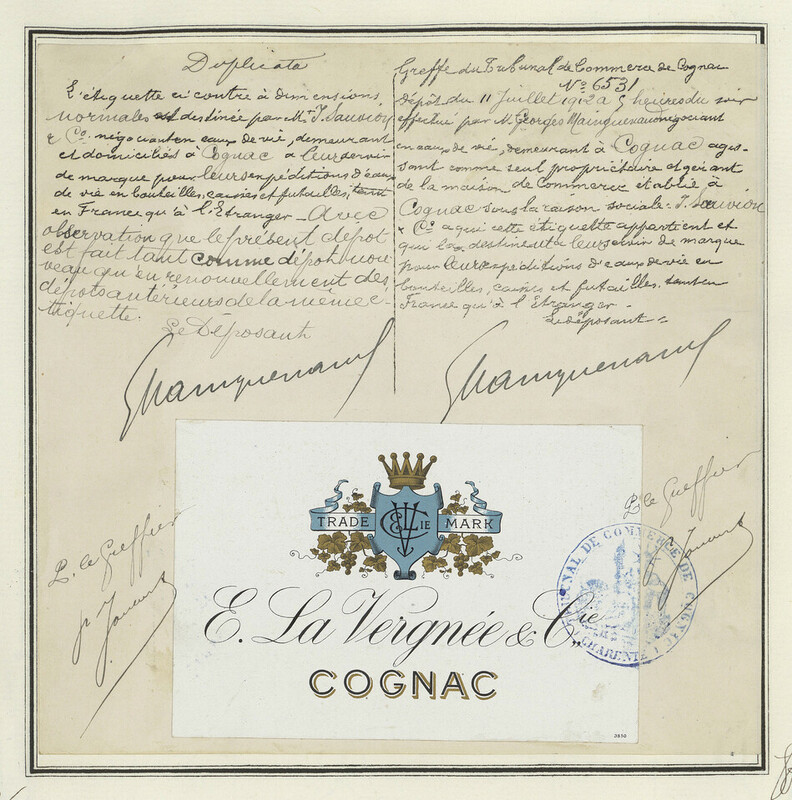 Duplicata
L'étiquette ci contre à dimensions
normales est destinée par M. J. Sauvion
& Co. négociants en eaux de vie, demeurant
et domiciliés à Cognac à leur servir
de marque pour leurs expéditions d'eaux
de vie en bouteilles, caisses et futailles, tant
en France qu'à l'Etranger _ Avec
observation que le présent dépôt
est fait tant comme dépôt nou-
veau qu'en renouvellement des
dépôts antérieurs de la même é-
tiquette.
Le Déposant
GMainguenaud
Greffe du Tribunal de Commerce de Cognac
No. 6531
Dépôt du 11 Juillet 1912 à 5 heures du soir
effectué par M. Georges Mainguenaud négociant
en eaux de vie, demeurant à Cognac agis-
sant comme seul propriétaire et gérant
de la maison de Commerce établie à
Cognac sous la raison sociale: J. Sauvion
& Co. à qui cette étiquette appartient et
qui la destinent à leur servir de marque
pour leurs expéditions d'eaux de vie en
bouteilles, caisses et futailles, tant en
France qu'à l'Etranger.
Le déposant
GMainguenaud
TRADE MARK
E. La Vergnée & Cie.
COGNAC
3850
P. le Greffier
P. le Greffier
TRIBUNAL DE COMMERCE DE COGNAC
CHARENTE